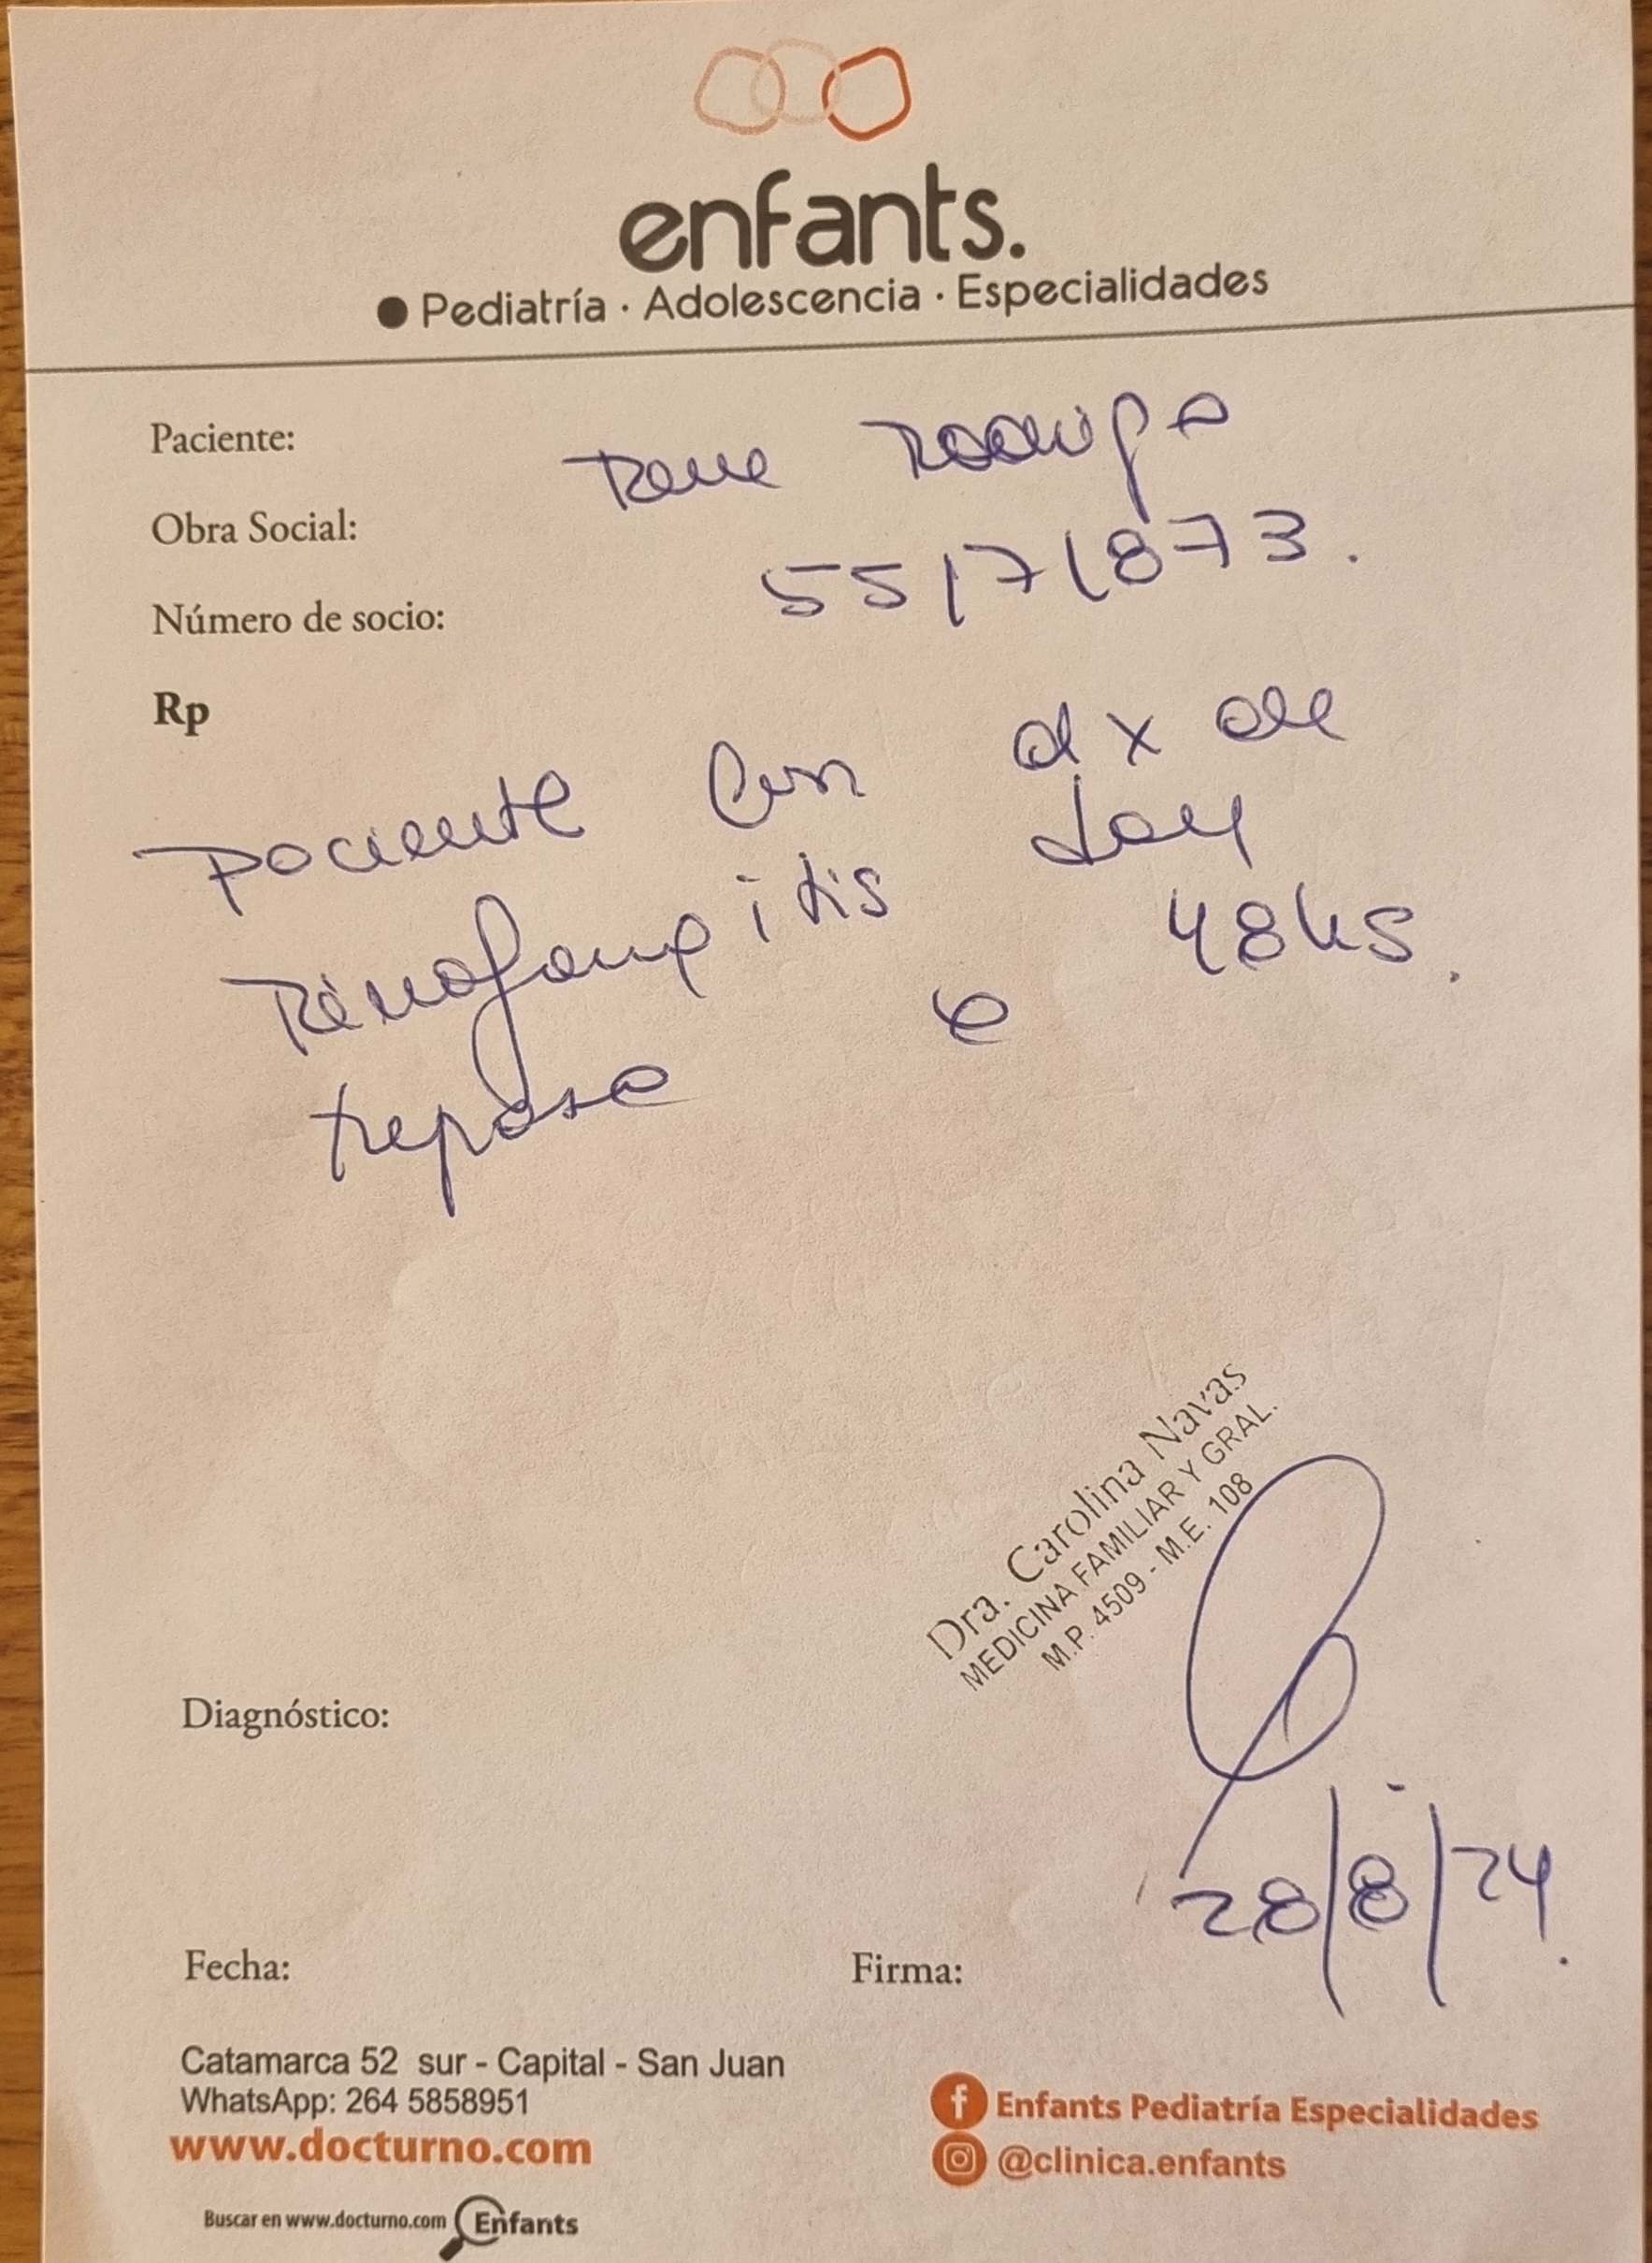 enfants.
Pediatría · Adolescencia · Especialidades
Paciente: Rodrigo
Obra Social:
55171873.
Número de socio:
Rp
paciente con dx de
Rinofaringitis
reposo 48hs.
Dra. Carolina Navas
MEDICINA FAMILIAR Y GRAL.
M.P. 4509 - M.E. 108
Diagnóstico:
28/8/24.
Fecha:
Firma:
Catamarca 52 sur - Capital - San Juan
WhatsApp: 264 5858951
www.docturno.com
Enfants Pediatría Especialidades
@clinica.enfants
Buscar en www.docturno.com Enfants